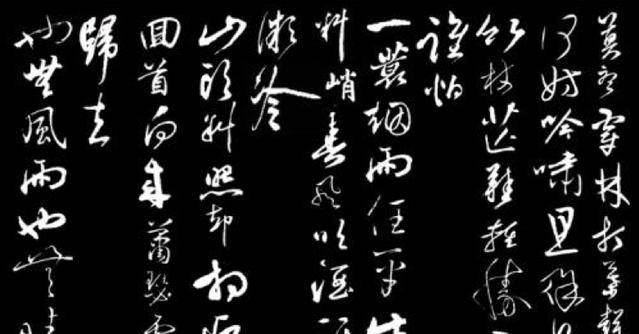 莫听穿林打葉聲
何妨吟嘯且徐行
竹杖芒鞋輕勝
誰怕
一蓑烟雨任平生
料峭春風吹酒
微冷
山頭斜照却相迎
回首向來蕭瑟處
歸去
也無風雨也無晴